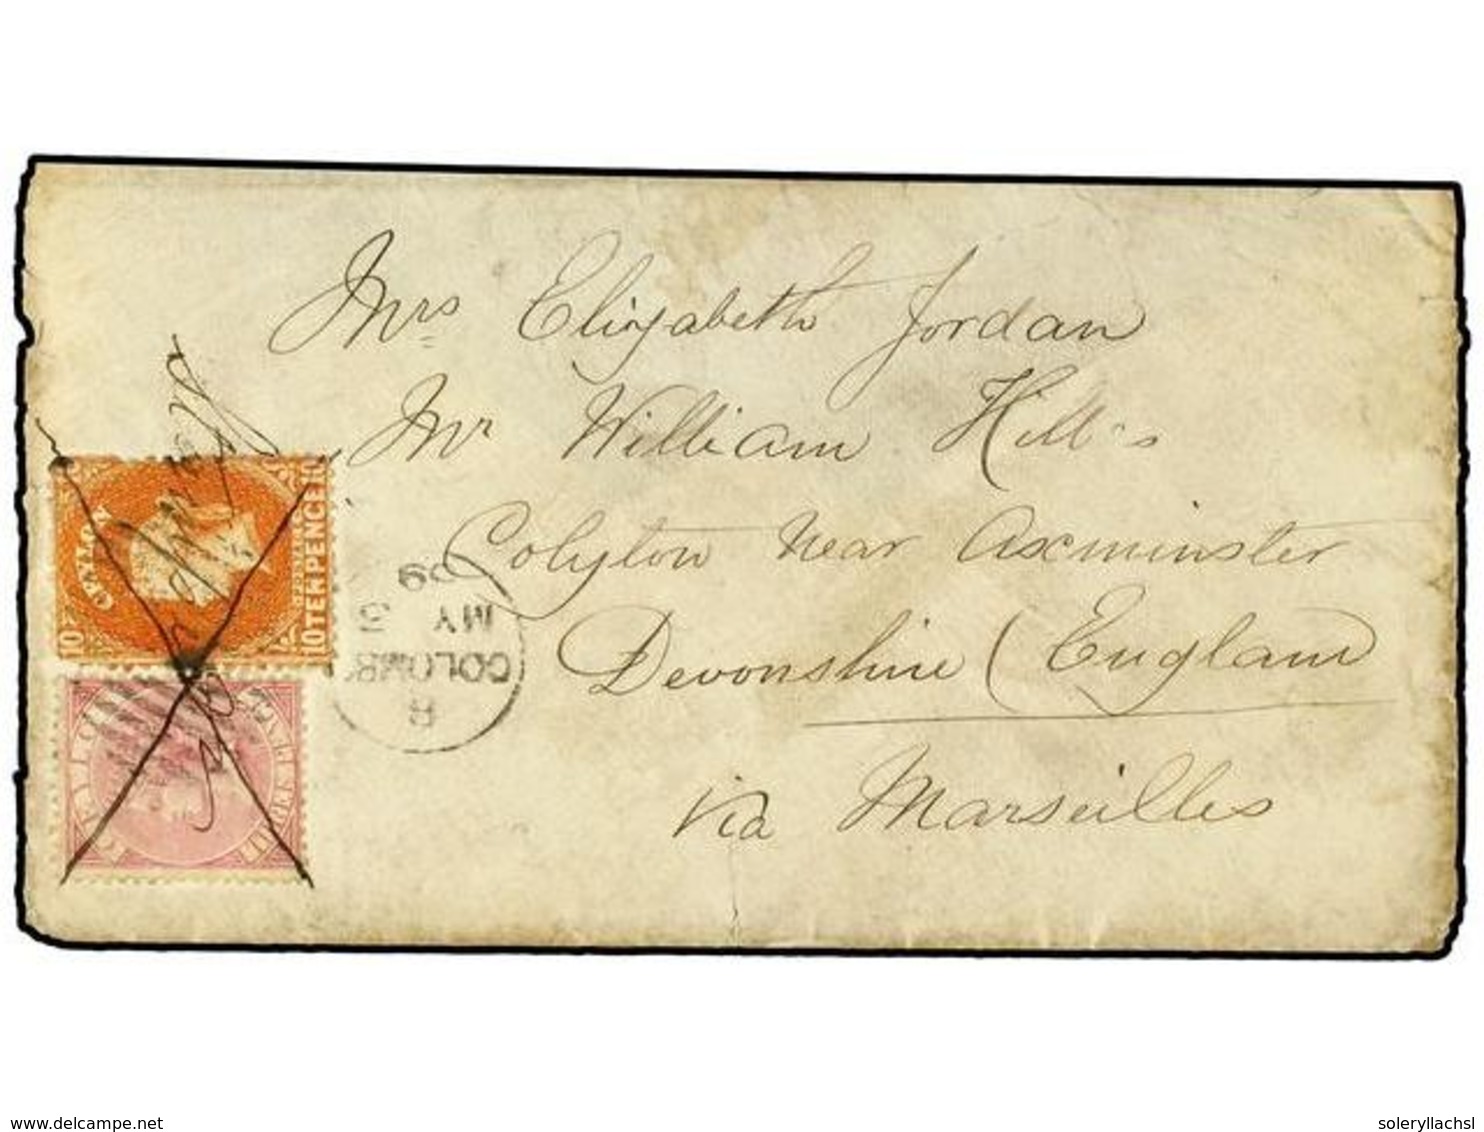 Mrs Elizabeth Jordan
Mr William Hill's
Colyton Near Axminster
Devonshire (England
via Marseilles
CEYLON
10 TENPENCE 10
10
CEYLON
ONE PENNY
COLOMB
MY 3
69
www.delcampe.net
soleryllachsl